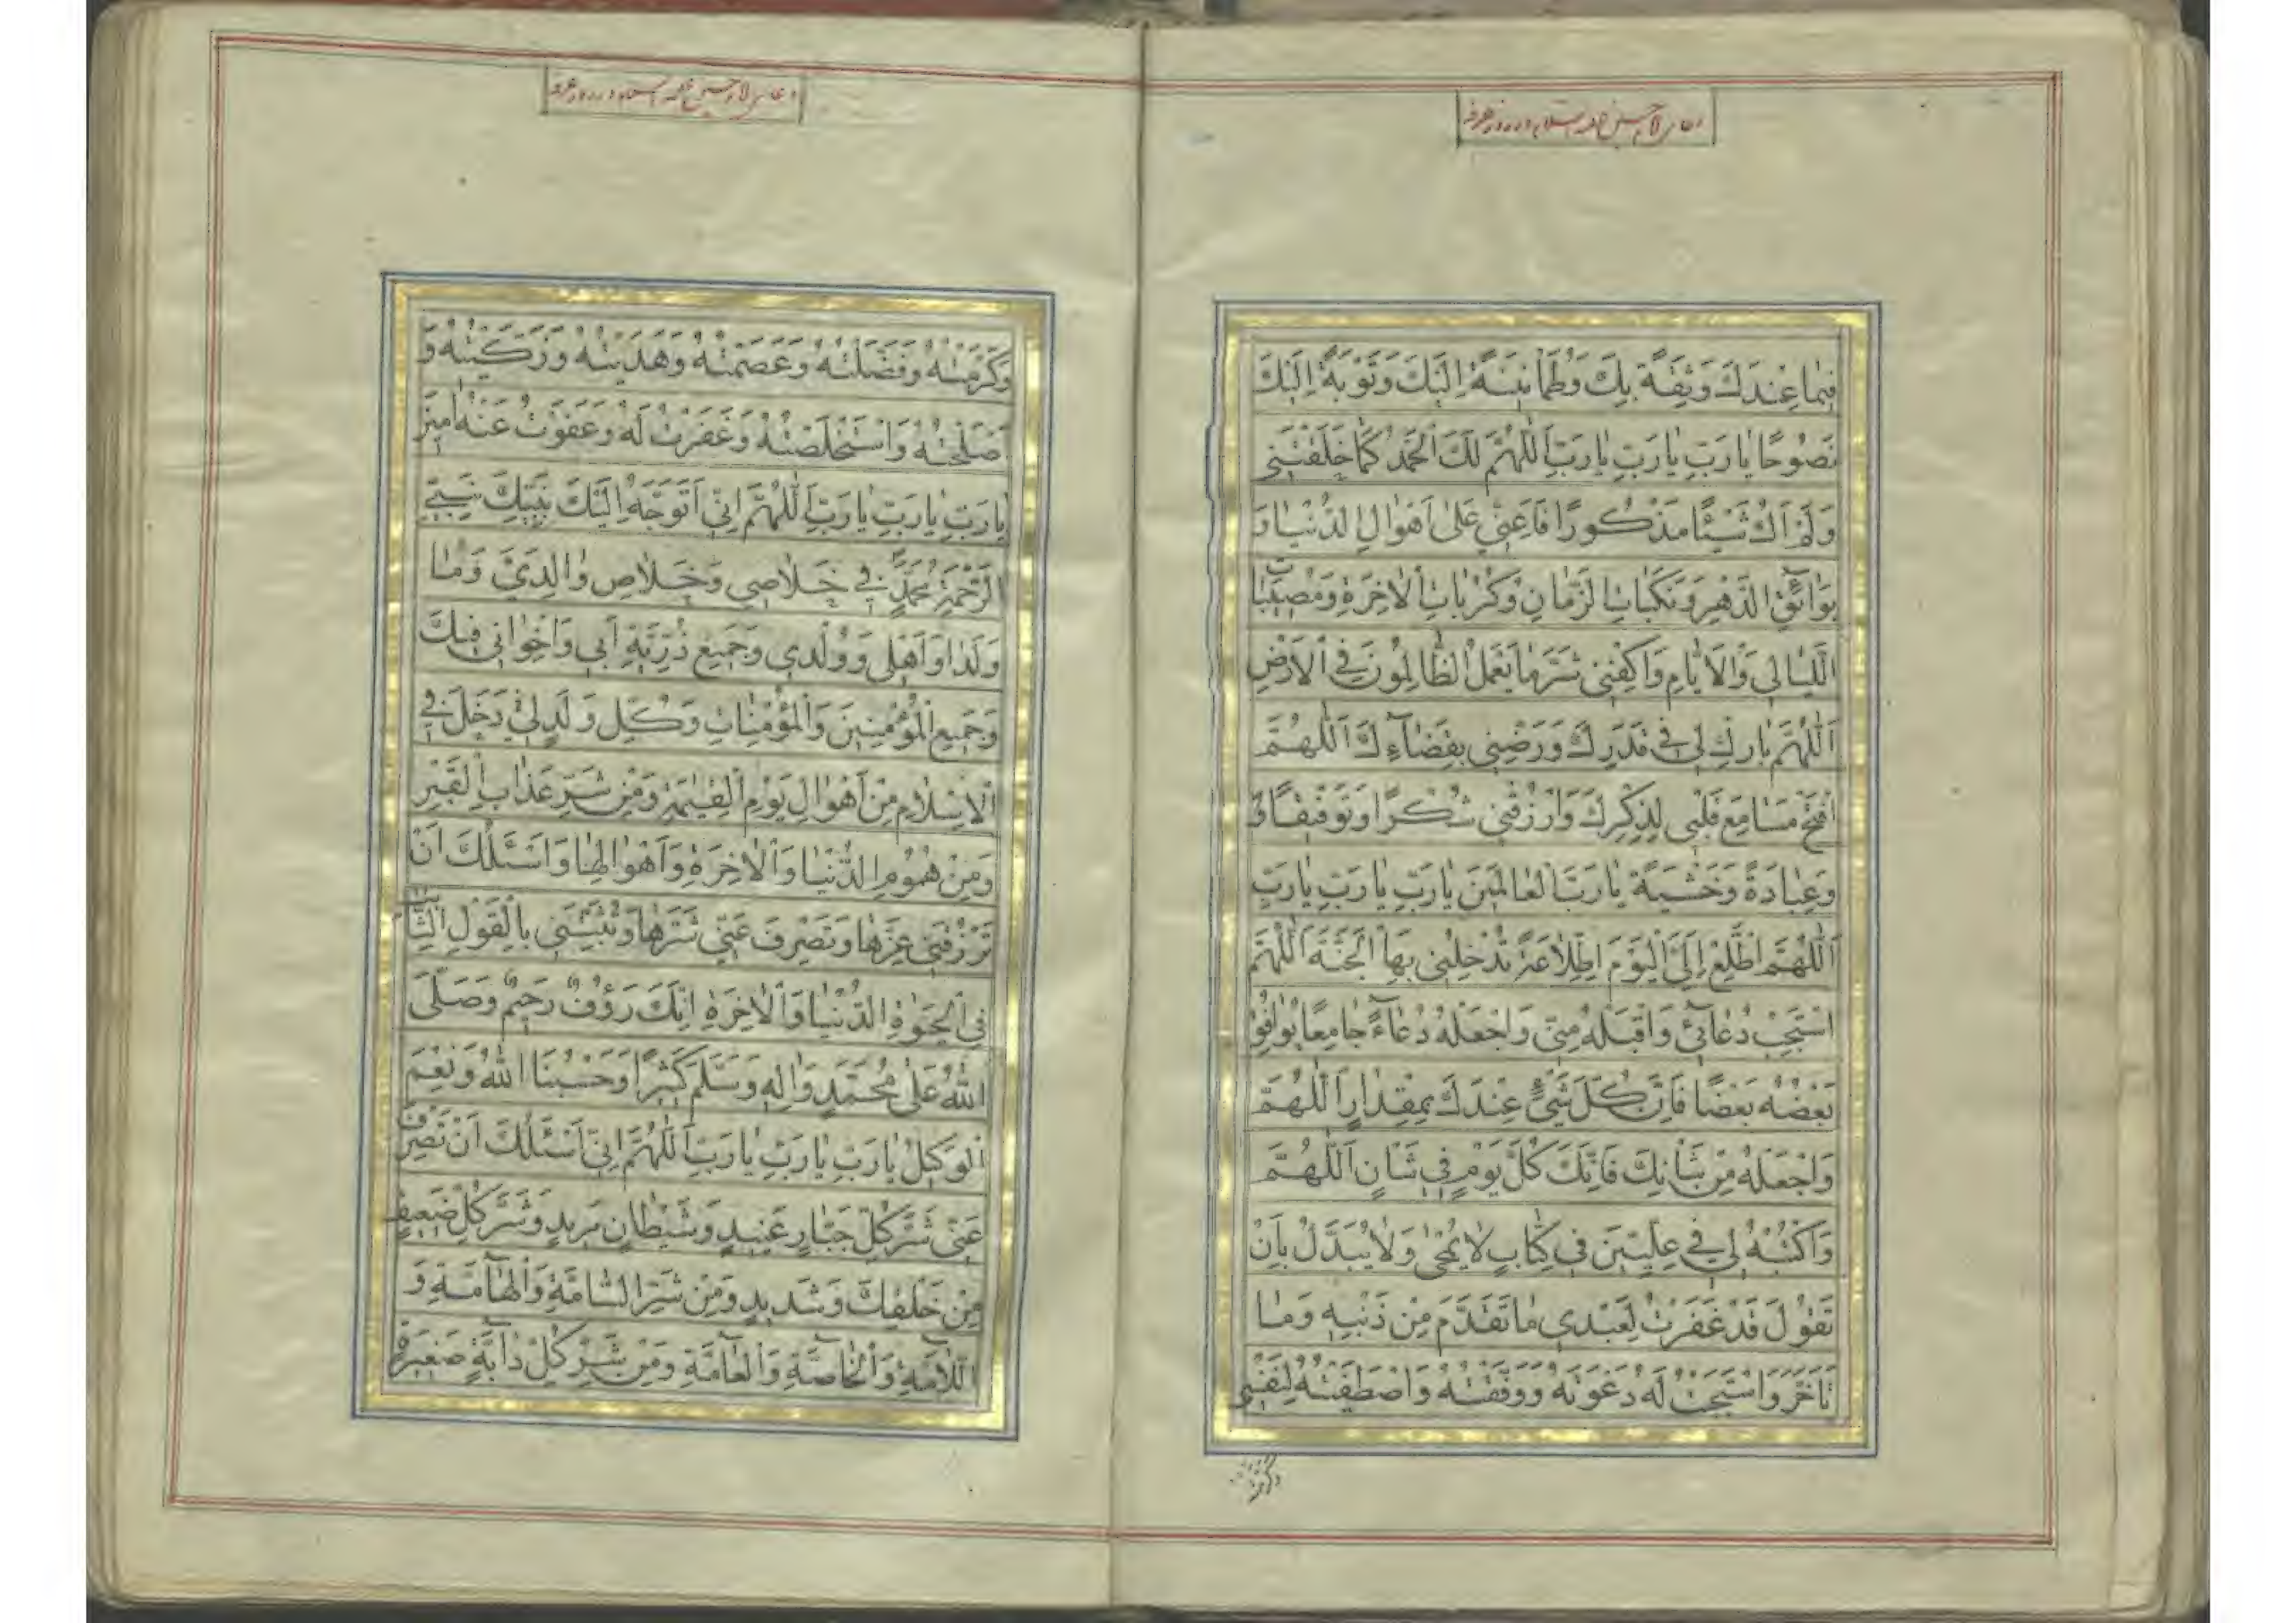 دعای امام حسین علیه السلام در روز عرفه
فِيمَا عِنْدَكَ وَثِقَةً بِكَ وَطُمَأْنِينَةً اِلَيْكَ وَتَوْبَةً اِلَيْكَ
نَصُوحًا يَا رَبِّ يَا رَبِّ يَا رَبِّ اَللّٰهُمَّ لَكَ الْحَمْدُ كَمَا خَلَقْتَنِي
وَلَمْ اَكُ شَيْئًا مَذْكُورًا فَاَعِنِّي عَلَى اَهْوَالِ الدُّنْيَا وَ
بَوَائِقِ الدَّهْرِ وَنَكَبَاتِ الزَّمَانِ وَكُرُبَاتِ الْاٰخِرَةِ وَمُصِيبَاتِ
اللَّيَالِي وَالْاَيَّامِ وَاكْفِنِي شَرَّ مَا يَعْمَلُ الظَّالِمُونَ فِي الْاَرْضِ
اَللّٰهُمَّ بَارِكْ لِي فِي قَدَرِكَ وَرَضِّنِي بِقَضَآءِكَ اَللّٰهُمَّ
افْتَحْ مَسَامِعَ قَلْبِي لِذِكْرِكَ وَارْزُقْنِي شُكْرًا وَتَوْفِيقًا وَ
وَعِبَادَةً وَخَشْيَةً يَا رَبَّ الْعَالَمِينَ يَا رَبِّ يَا رَبِّ يَا رَبِّ
اَللّٰهُمَّ اطَّلِعْ اِلَيَّ الْيَوْمَ اِطِّلَاعَةً تُدْخِلُنِي بِهَا الْجَنَّةَ اَللّٰهُمَّ
اسْتَجِبْ دُعَآئِي وَاقْبَلْهُ مِنِّي وَاجْعَلْهُ دُعَآءً جَامِعًا يُوَافِقُ
بَعْضُهُ بَعْضًا فَاِنَّ كُلَّ شَيْءٍ عِنْدَكَ بِمِقْدَارٍ اَللّٰهُمَّ
وَاجْعَلْهُ مِنْ شَأْنِكَ فَاِنَّكَ كُلَّ يَوْمٍ فِي شَأْنٍ اَللّٰهُمَّ
وَاكْتُبْهُ لِي فِي عِلِّيِّينَ فِي كِتَابٍ لَا يُمْحٰى وَلَا يُبَدَّلُ بِاَنْ
تَقُولَ قَدْ غَفَرْتُ لِعَبْدِي مَا تَقَدَّمَ مِنْ ذَنْبِهِ وَمَا
تَاَخَّرَ وَاسْتَجَبْتُ لَهُ دَعْوَتَهُ وَوَفَّقْتُهُ وَاصْطَفَيْتُهُ لِنَفْسِي
وكرمته
دعای امام حسین علیه السلام در روز عرفه
وَكَرَّمْتُهُ وَفَضَّلْتُهُ وَعَصَمْتُهُ وَهَدَيْتُهُ وَزَكَّيْتُهُ وَ
اَصْلَحْتُهُ وَاسْتَخْلَصْتُهُ وَغَفَرْتُ لَهُ وَعَفَوْتُ عَنْهُ اٰمِينَ
يَا رَبِّ يَا رَبِّ يَا رَبِّ اَللّٰهُمَّ اِنِّي اَتَوَجَّهُ اِلَيْكَ بِنَبِيِّكَ نَبِيِّ
الرَّحْمَةِ مُحَمَّدٍ فِي خَلَاصِي وَخَلَاصِ وَالِدَيَّ وَمَا
وَلَدَا وَاَهْلِي وَوُلْدِي وَجَمِيعِ ذُرِّيَّةِ اَبِي وَاِخْوَانِي فِيكَ
وَجَمِيعِ الْمُؤْمِنِينَ وَالْمُؤْمِنَاتِ وَكُلِّ وَلَدٍ لِي دَخَلَ فِي
الْاِسْلَامِ مِنْ اَهْوَالِ يَوْمِ الْقِيٰمَةِ وَمِنْ شَرِّ عَذَابِ الْقَبْرِ
وَمِنْ هُمُومِ الدُّنْيَا وَالْاٰخِرَةِ وَاَهْوَالِهَا وَاَسْئَلُكَ اَنْ
تَرْزُقَنِي عِزَّهَا وَتَصْرِفَ عَنِّي شَرَّهَا وَتُثَبِّتَنِي بِالْقَوْلِ الثَّابِتِ
فِي الْحَيٰوةِ الدُّنْيَا وَالْاٰخِرَةِ اِنَّكَ رَؤُفٌ رَحِيمٌ وَصَلَّى
اللّٰهُ عَلَى مُحَمَّدٍ وَاٰلِهِ وَسَلَّمَ كَثِيرًا وَحَسْبُنَا اللّٰهُ وَنِعْمَ
الْوَكِيلُ يَا رَبِّ يَا رَبِّ يَا رَبِّ اَللّٰهُمَّ اِنِّي اَسْئَلُكَ اَنْ تَصْرِفَ
عَنِّي شَرَّ كُلِّ جَبَّارٍ عَنِيدٍ وَشَيْطَانٍ مَرِيدٍ وَشَرَّ كُلِّ ضَعِيفٍ
مِنْ خَلْقِكَ وَشَدِيدٍ وَمِنْ شَرِّ السَّامَّةِ وَالْهَآمَّةِ وَ
اللَّآمَّةِ وَالْخَآصَّةِ وَالْعَآمَّةِ وَمِنْ شَرِّ كُلِّ دَآبَّةٍ صَغِيرَةٍ